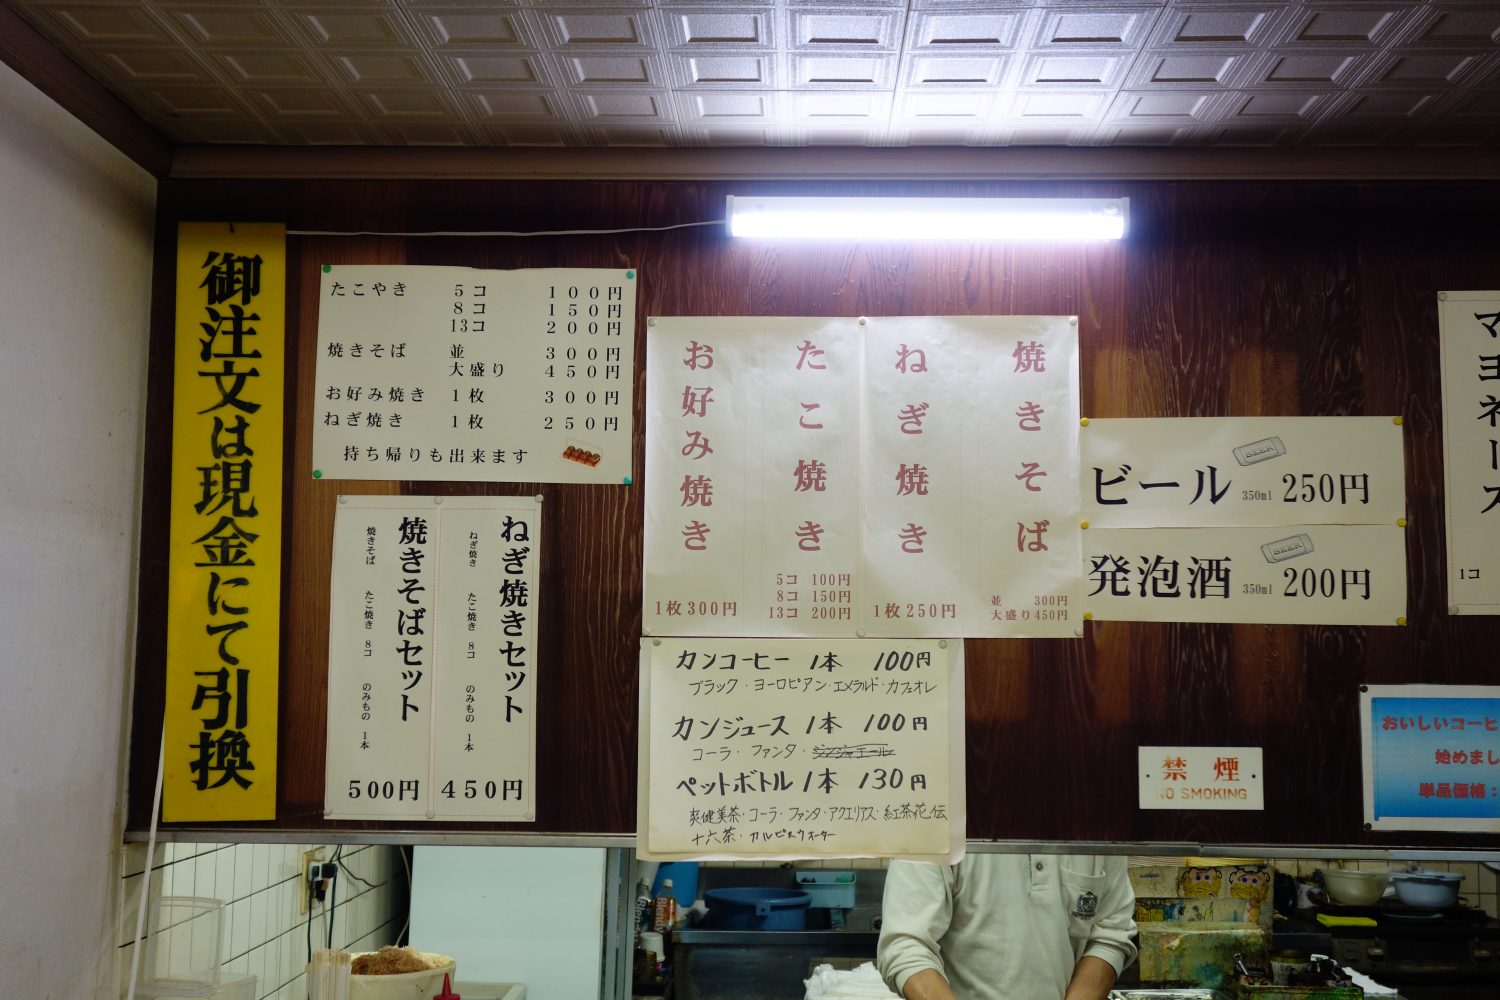 御注文は現金にて引換
たこやき 5コ 100円
8コ 150円
13コ 200円
焼きそば 並 300円
大盛り 450円
お好み焼き 1枚 300円
ねぎ焼き 1枚 250円
持ち帰りも出来ます
ねぎ焼きセット
ねぎ焼き たこ焼き 8コ のみもの 1本
450円
焼きそばセット
焼きそば たこ焼き 8コ のみもの 1本
500円
焼きそば
並 300円
大盛り450円
ねぎ焼き
1枚250円
たこ焼き
5コ 100円
8コ 150円
13コ 200円
お好み焼き
1枚300円
カンコーヒー 1本 100円
ブラック・ヨーロピアン・エメラルド・カフェオレ
カンジュース 1本 100円
コーラ・ファンタ・ジンジャエール
ペットボトル 1本 130円
爽健美茶・コーラ・ファンタ・アクエリアス・紅茶花伝
十六茶・カルピスウォーター
BEER
ビール 350ml 250円
BEER
発泡酒 350ml 200円
マヨネーズ
1コ
禁煙
NO SMOKING
おいしいコーヒ
始めまし
単品価格：